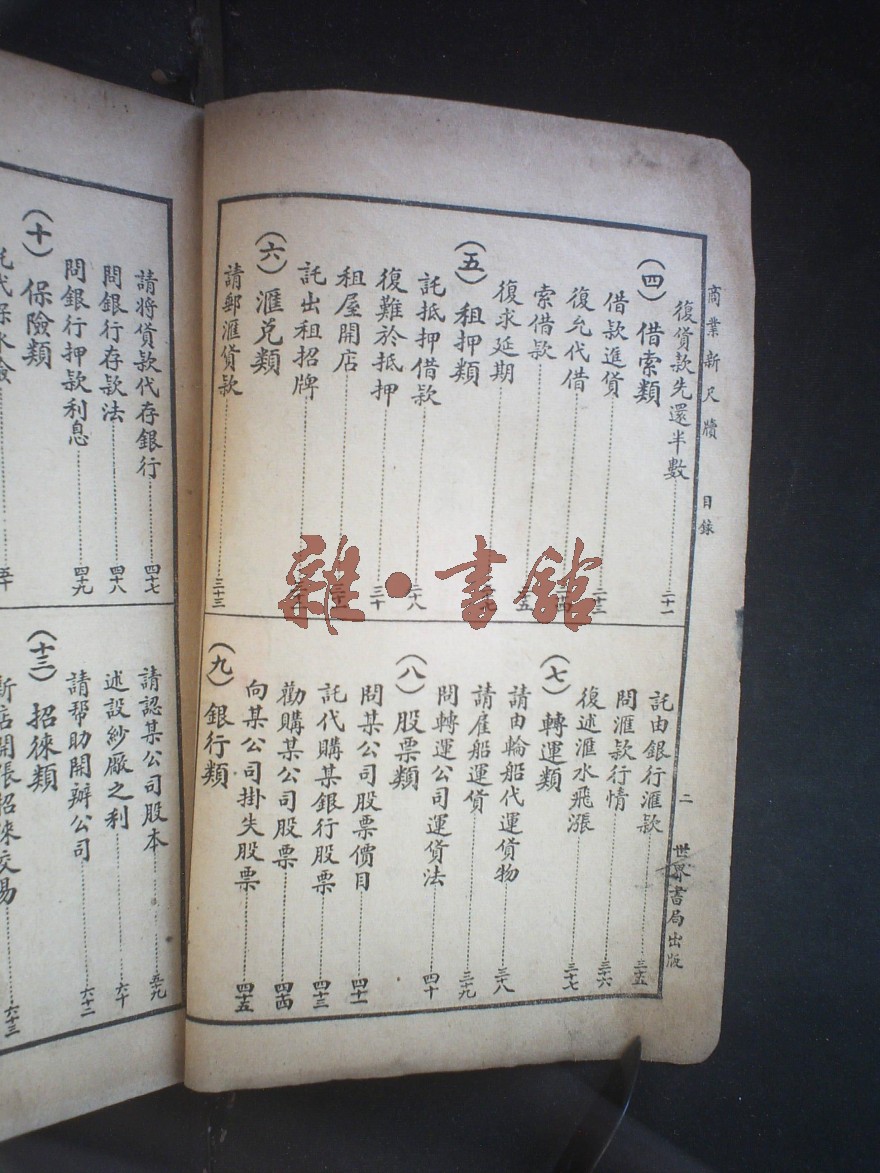 商業新尺牘 目錄 二 世界書局出版
復貨款先還半數 二十一
(四)借索類
借款進貨 二十三
復允代借
索借款
復求延期
(五)租押類
託抵押借款 二十八
復難於抵押 三十
租屋開店
託出租招牌
(六)滙兑類
請郵滙貨款 三十三
託由銀行滙款 三十五
問滙款行情 三十六
復述滙水飛漲 三十七
(七)轉運類
請由輪船代運貨物 三十八
請雇船運貨 三十九
問轉運公司運貨法 四十
(八)股票類
問某公司股票價目 四十一
託代購某銀行股票 四十三
勸購某公司股票 四十四
向某公司掛失股票 四十五
(九)銀行類
請將貨款代存銀行 四十七
問銀行存款法 四十八
問銀行押款利息 四十九
(十)保險類
託代保水險 五十
請認某公司股本 五十九
述設紗廠之利 六十
請帮助開辦公司 六十二
(十三)招徠類
新店開張招徠交易 六十三
雜·書舘